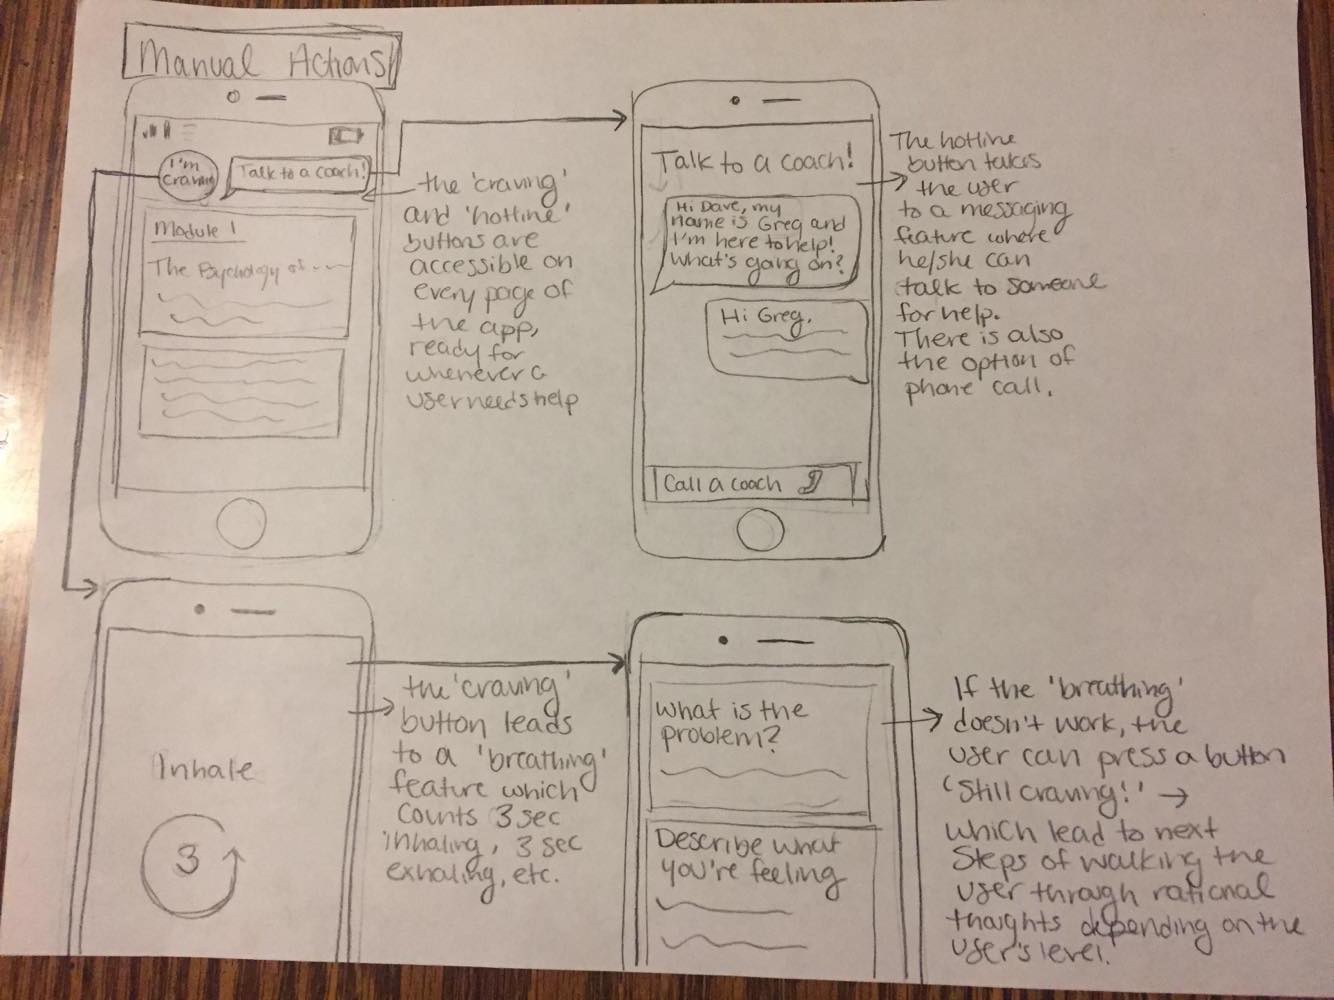 Manual Actions
I'm
Craving
Talk to a coach!
Module 1
The Psychology of
the 'craving'
and 'hotline'
buttons are
accessible on
every page of
the app,
ready for
whenever a
user needs help
Talk to a coach!
Hi Dave, my
name is Greg and
I'm here to help!
What's going on?
Hi Greg,
Call a coach
The hotline
button takes
the user
to a messaging
feature where
he/she can
talk to someone
for help.
There is also
the option of
phone call.
Inhale
3
the 'craving'
button leads
to a 'breathing'
feature which
counts 3 sec
inhaling, 3 sec
exhaling, etc.
What is the
problem?
Describe what
you're feeling
If the 'breathing'
doesn't work, the
user can press a button
'Still craving!' →
which lead to next
steps of walking the
user through rational
thoughts depending on the
user's level.